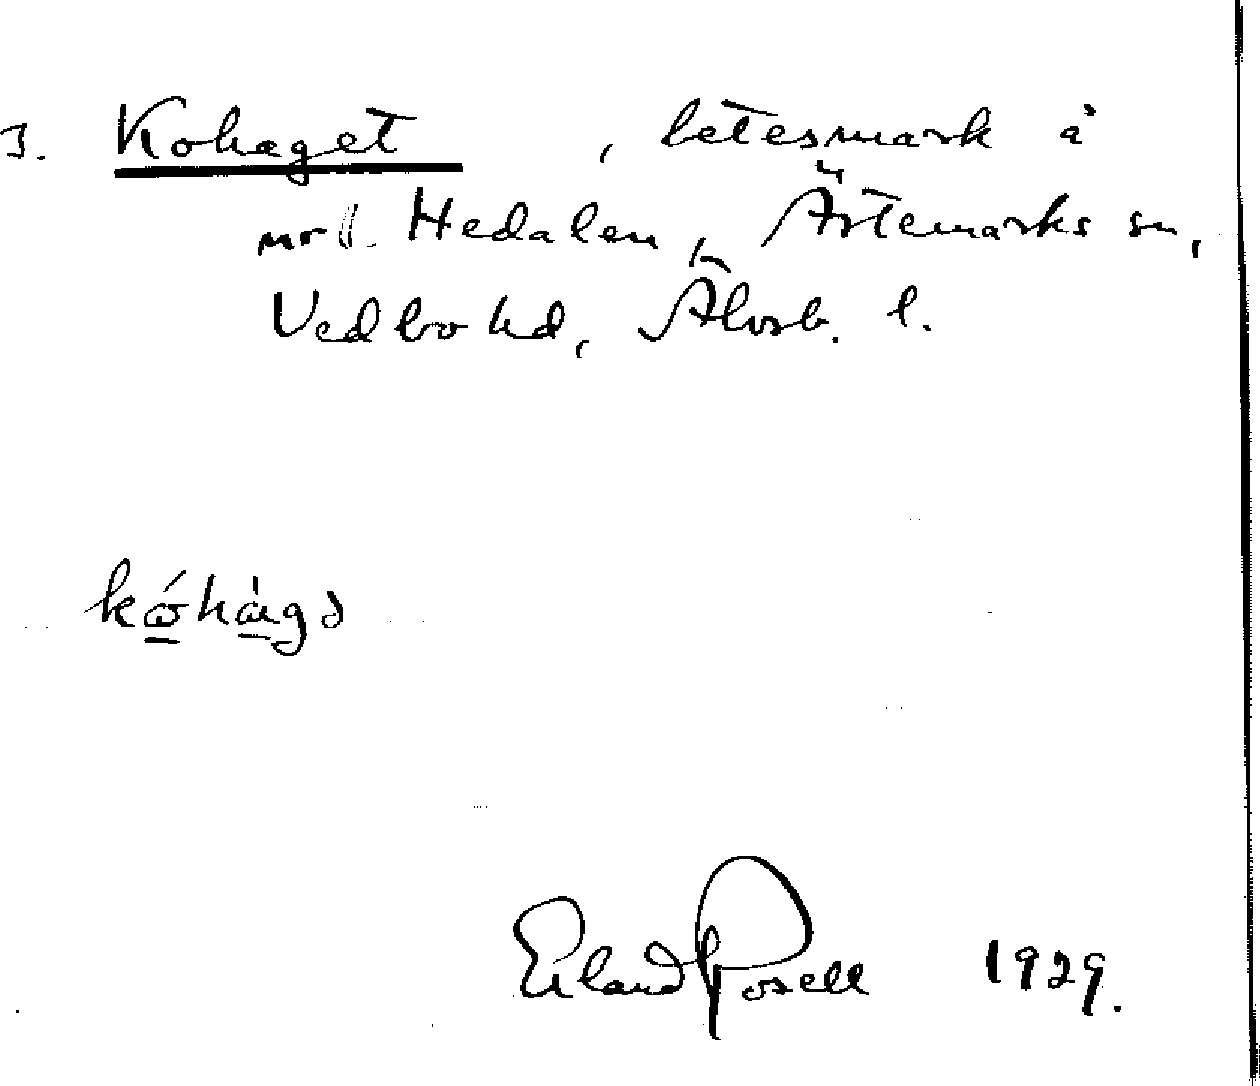 3. Kohaget , betesmark å
mrl. Hedalen, Ärtemarks sn,
Vedbo hd, Älvsb. l.
kóhàgə
Erland Rosell 1929.